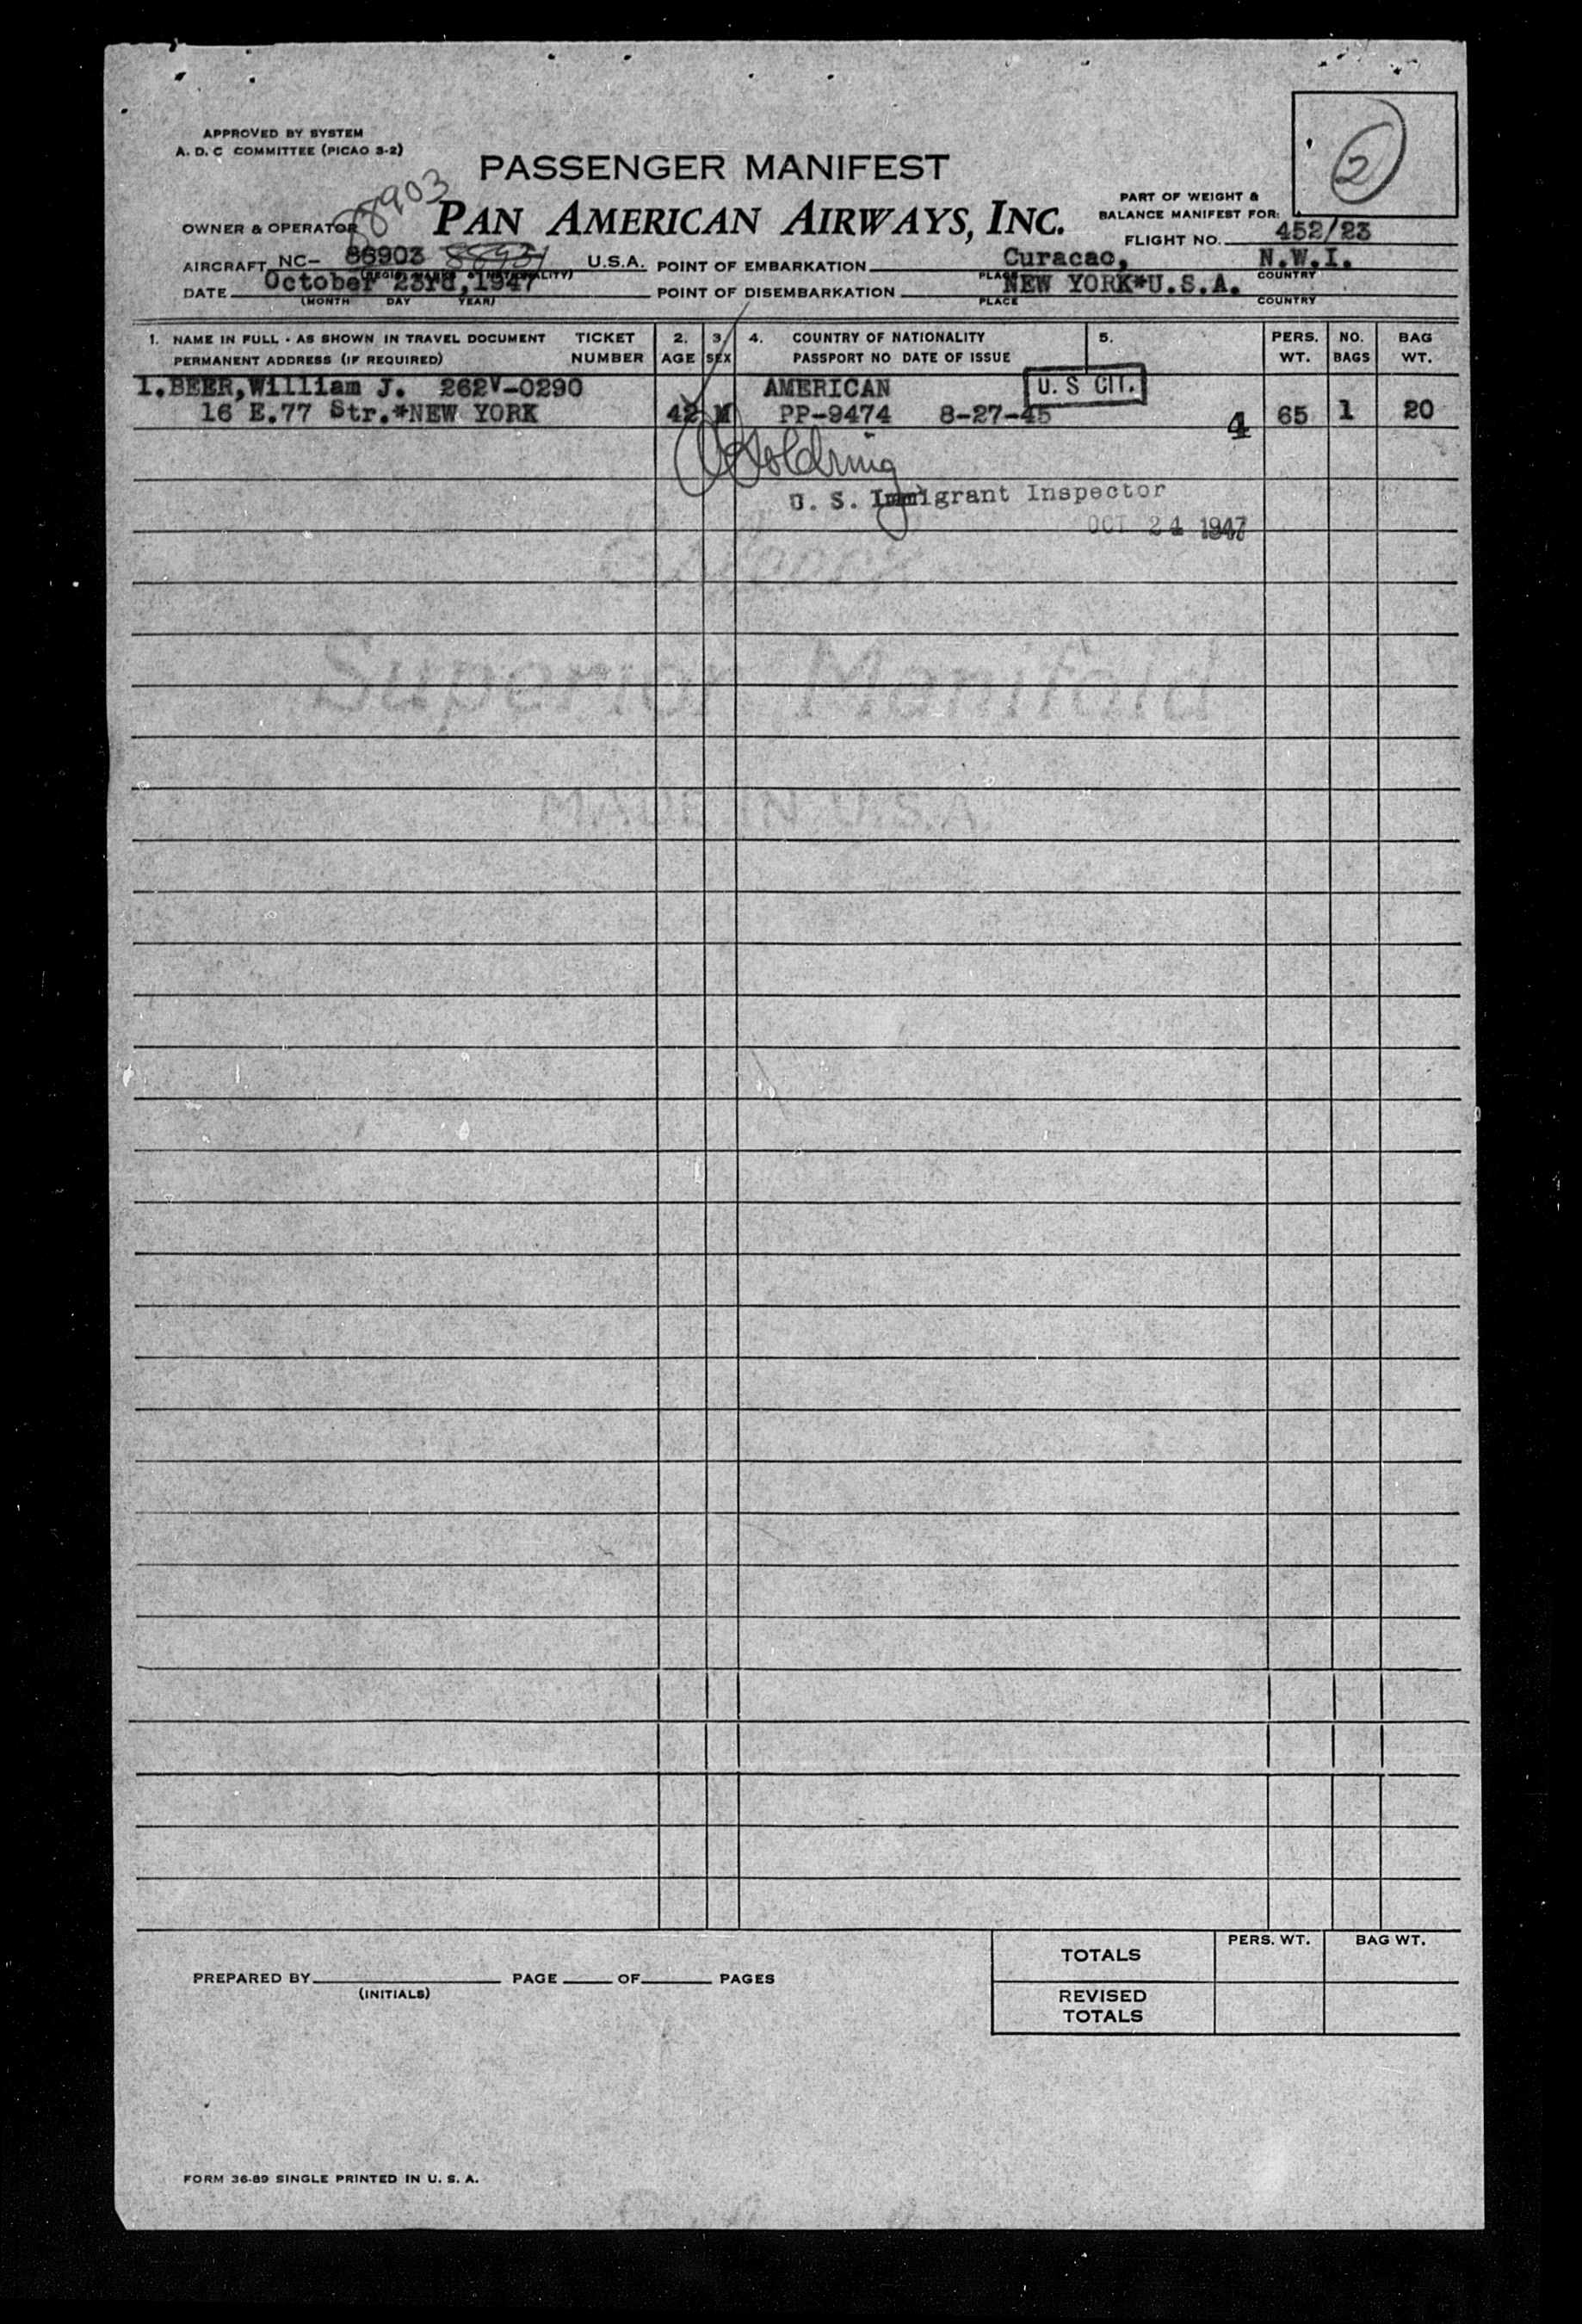 APPROVED BY SYSTEM
A. D. C COMMITTEE (PICAO 3-2)
2
PASSENGER MANIFEST
88903
OWNER & OPERATOR PAN AMERICAN AIRWAYS, INC.
PART OF WEIGHT &
BALANCE MANIFEST FOR:
FLIGHT NO. 452/23
AIRCRAFT NC- 88903 U.S.A. POINT OF EMBARKATION Curacao, N.W.I.
(REGIS. MARKS & NATIONALITY) PLACE COUNTRY
DATE October 23rd,1947 POINT OF DISEMBARKATION NEW YORK*U.S.A.
(MONTH DAY YEAR) PLACE COUNTRY
1. NAME IN FULL - AS SHOWN IN TRAVEL DOCUMENT TICKET 2. 3. 4. COUNTRY OF NATIONALITY 5. PERS. NO. BAG
PERMANENT ADDRESS (IF REQUIRED) NUMBER AGE SEX PASSPORT NO DATE OF ISSUE WT. BAGS WT.
1.BEER,William J. 262V-0290 AMERICAN U. S CIT.
16 E.77 Str.*NEW YORK 42 M PP-9474 8-27-45 4 65 1 20
Goldring
U. S. Immigrant Inspector
OCT 24 1947
Superior Manifold
MADE IN U.S.A.
PERS. WT. BAG WT.
TOTALS
PREPARED BY PAGE OF PAGES
(INITIALS)
REVISED
TOTALS
FORM 36-89 SINGLE PRINTED IN U. S. A.